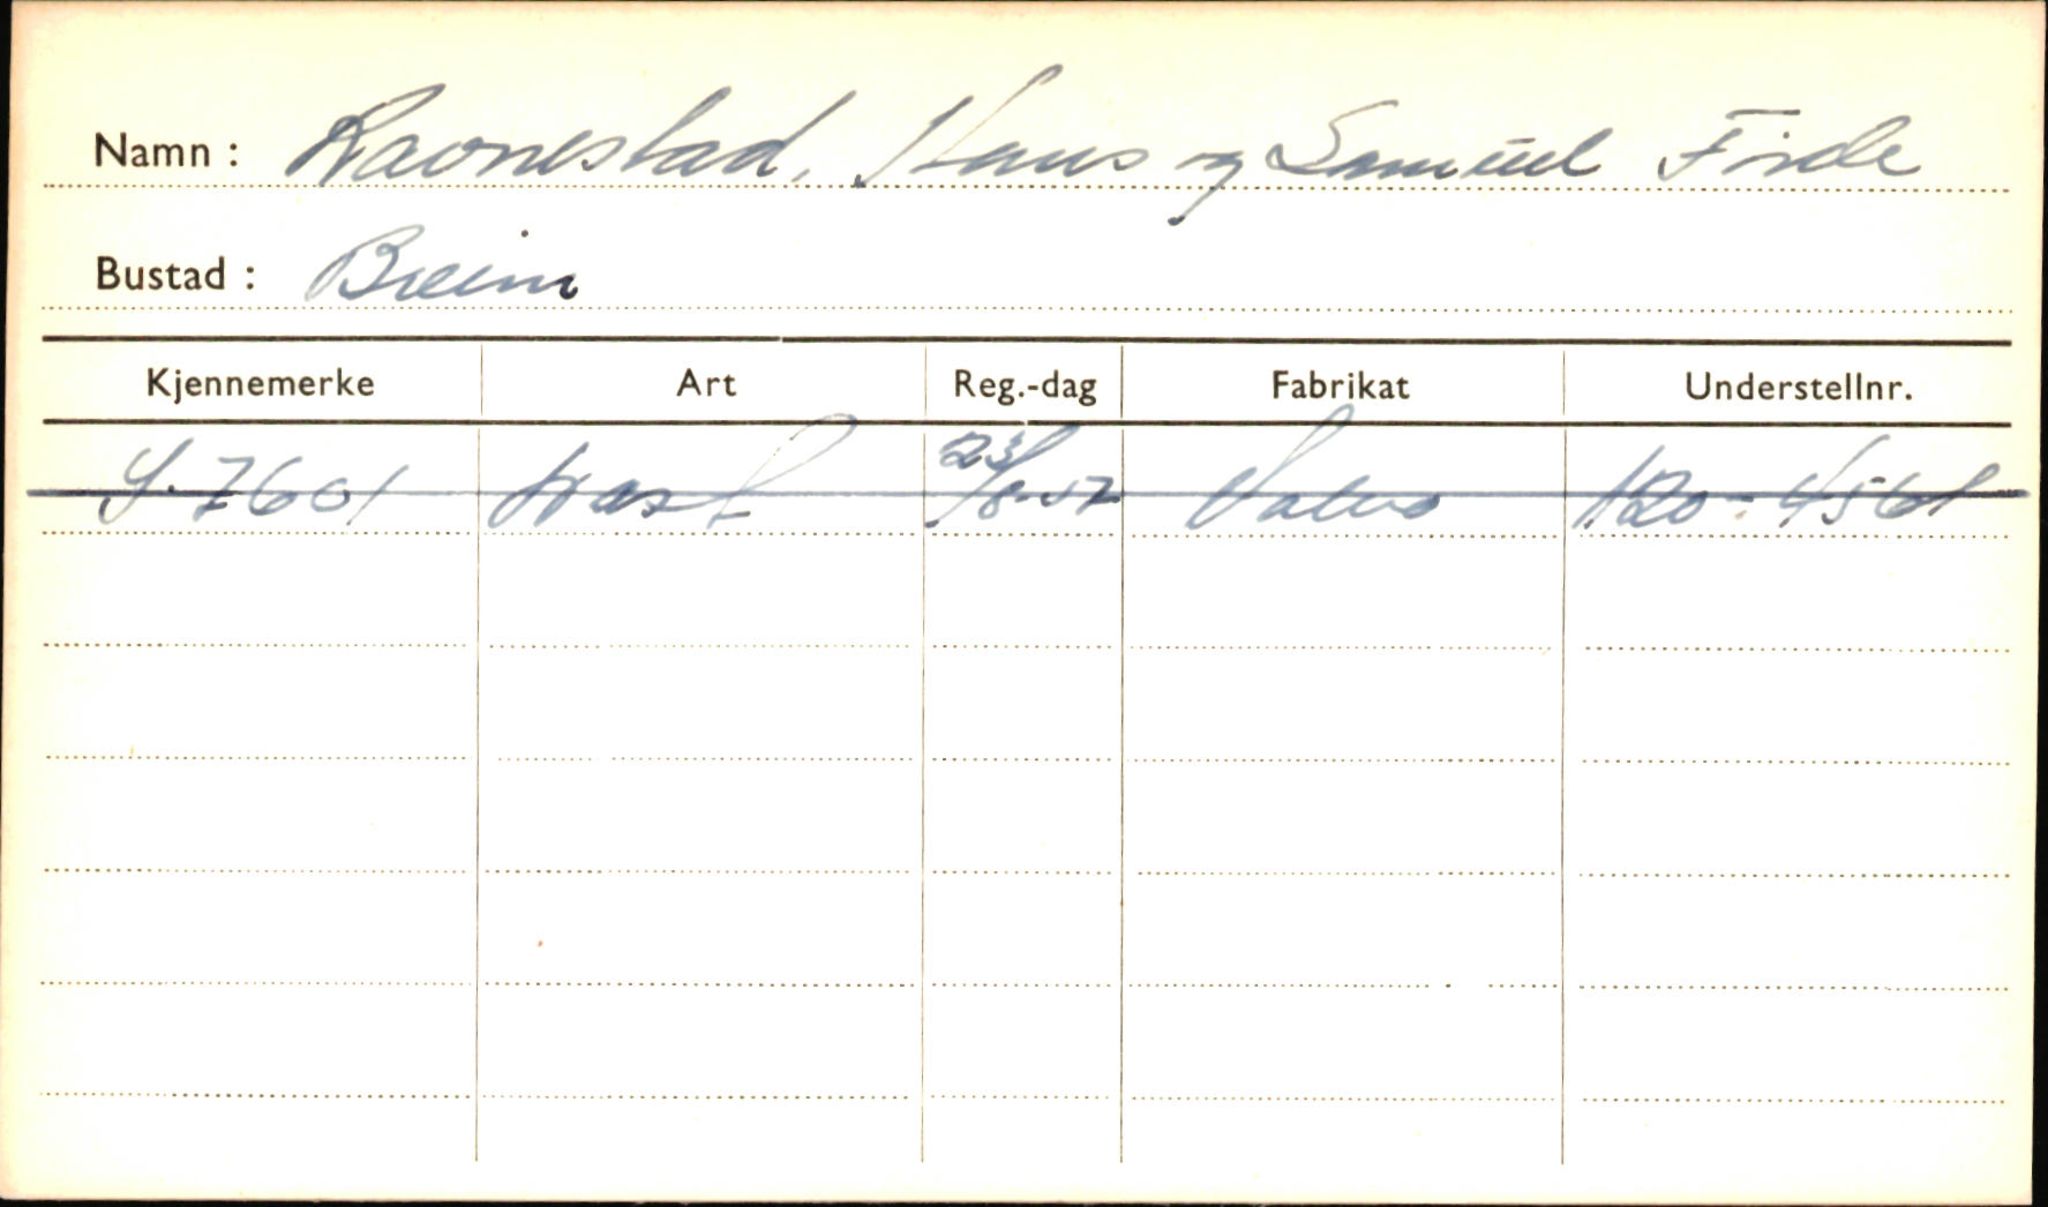 Namn : Ravnestad, Hans og Samuel Förde
Bustad : Breim
Kjennemerke Art Reg.-dag Fabrikat Understellnr.
S-7601 Last 23/8-57 Volvo 120-4561